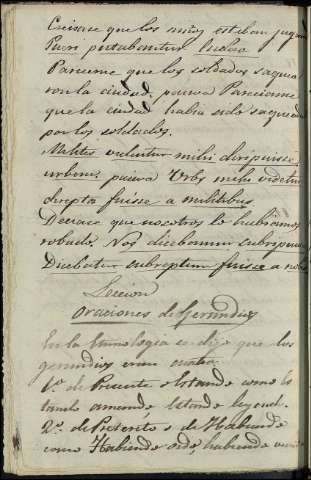 Creiase que los niños estaban jugan
Pueri putabantur ludere
Pareceme que los soldados saquea
ron la ciudad. pasiva Pareceme
que la ciudad habia sido saqueada
por los soldados.
Milites videntur mihi diripuisse
urbem. pasiva Urbs mihi videtur
direpta fuisse a militibus
Deciase que nosotros lo hubiamos
robado. Nos dicebamur subripuisse
Dicebatur subreptum fuisse a nobis
Leccion
Oraciones de Gerundios
En la Etimologia se dijo que los
gerundios eran cuatro
1º. de Presente o Estando como Es
tando amando Estando leyendo.
2º. de Preterito o de Habiendo
como Habiendo sido, habiendo